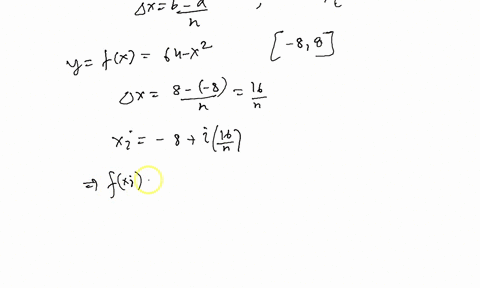 Δx = b - a / n ,
y = f(x) = 64 - x² [-8, 8]
Δx = 8 - (-8) / n = 16 / n
xᵢ = - 8 + i(16/n)
⇒ f(xᵢ)